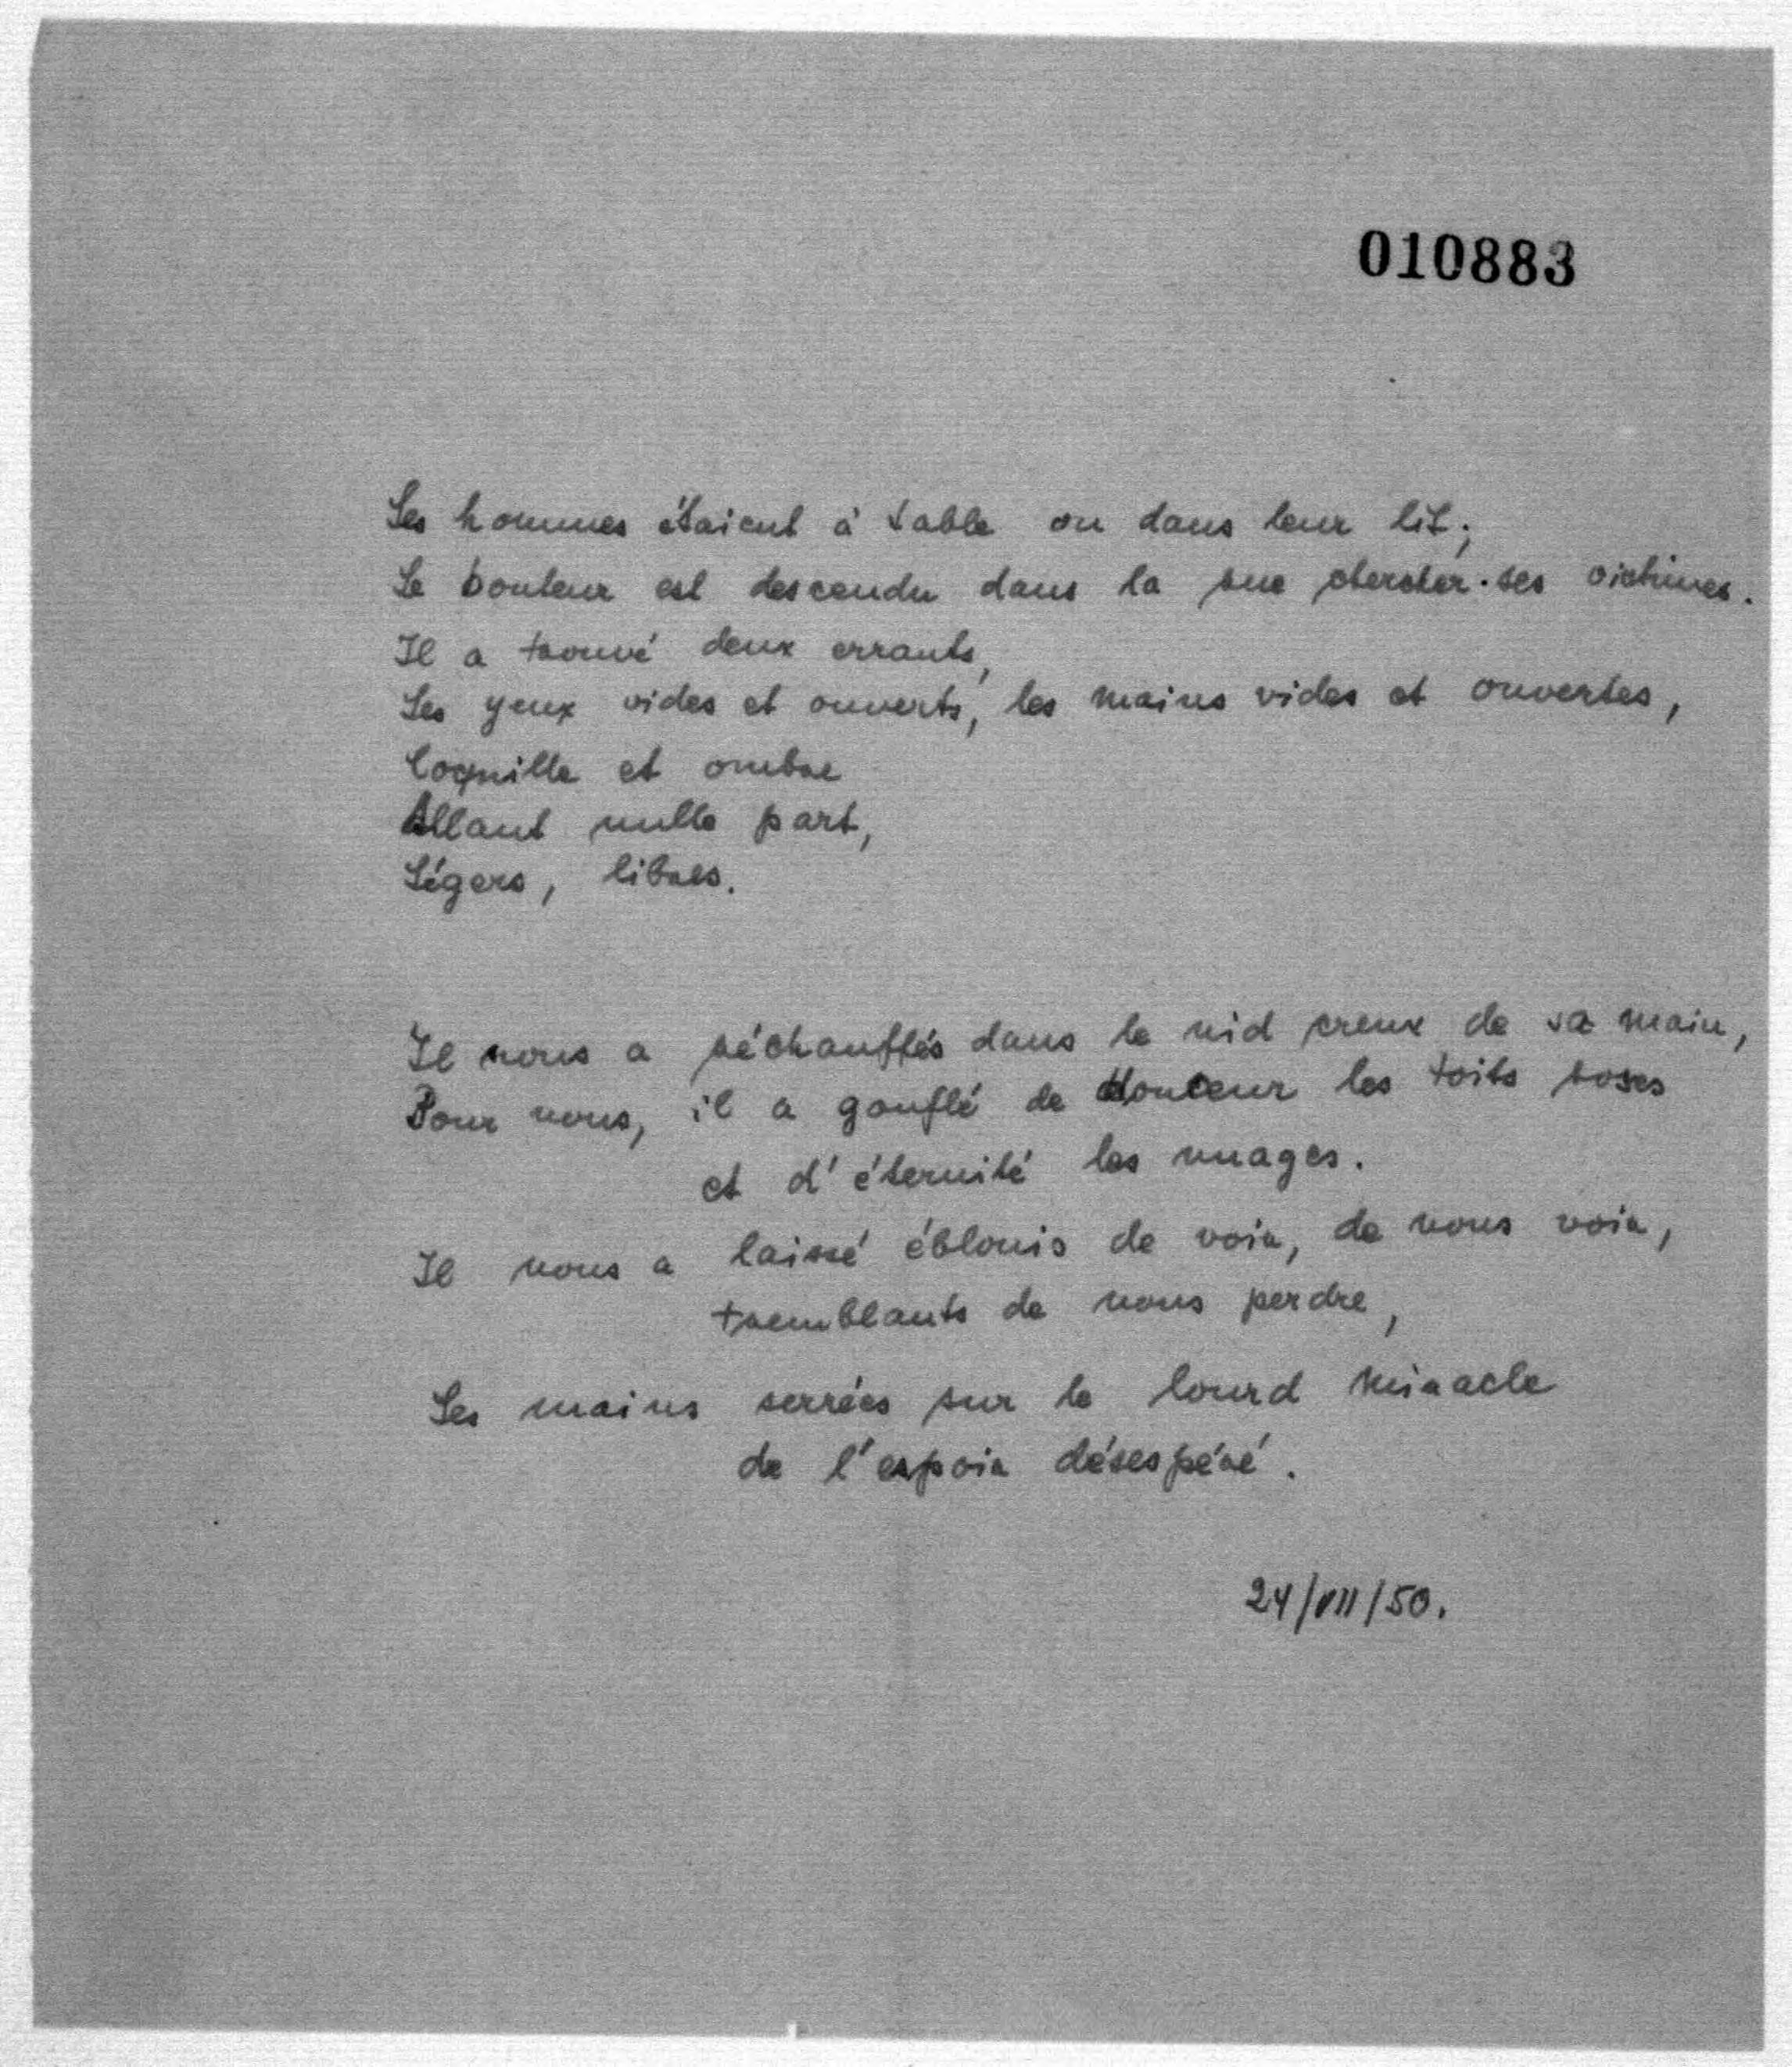 010883
Les hommes étaient à table ou dans leur lit;
Le bonheur est descendu dans la rue chercher ses victimes.
Il a trouvé deux errants,
Les yeux vides et ouverts, les mains vides et ouvertes,
Coquille et ombre
Allant nulle part,
Légers, libres.
Il nous a réchauffés dans le nid creux de sa main,
Pour nous, il a gonflé de douceur les toits roses
et d'éternité les nuages.
Il nous a laissé éblouis de voir, de nous voir,
tremblants de nous perdre,
Les mains serrées sur le lourd miracle
de l'espoir désespéré.
24/VII/50.